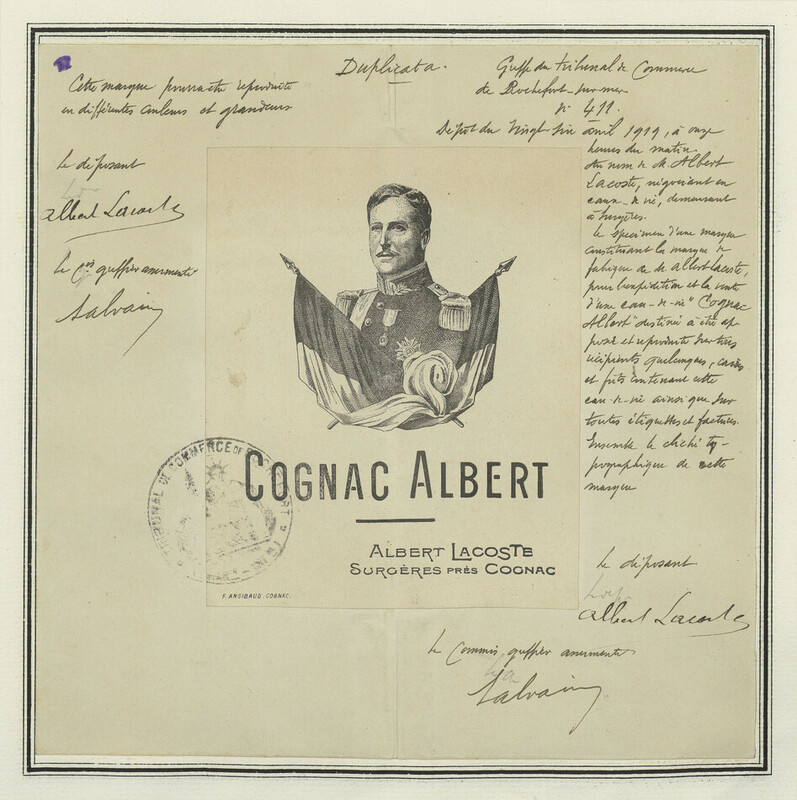 Duplicata.
Cette marque pourra être reproduite
en différentes couleurs et grandeurs
le déposant
Albert Lacoste
le Cis greffier assermenté
Salvain
Greffe du tribunal de Commerce
de Rochefort-sur-mer
n° 411.
Dépôt du vingt six avril 1919, à onze
heures du matin
au nom de M. Albert
Lacoste, négociant en
eaux-de-vie, demeurant
à Surgères.
Le specimen d'une marque
constituant la marque de
fabrique de M. Albert Lacoste,
pour l'expédition et la vente
d'une eau-de-vie "Cognac
Albert" destinée à être ap-
posée et reproduite sur tous
récipients quelconques, caisses
et fûts contenant cette
eau-de-vie ainsi que sur
toutes étiquettes et factures.
Ensemble le cliché ty-
pographique de cette
marque
le déposant
Albert Lacoste
le Commis greffier assermenté
Salvain
COGNAC ALBERT
ALBERT LACOSTE
SURGÈRES PRÈS COGNAC
F. ANGIBAUD. COGNAC.
TRIBUNAL DE COMMERCE DE